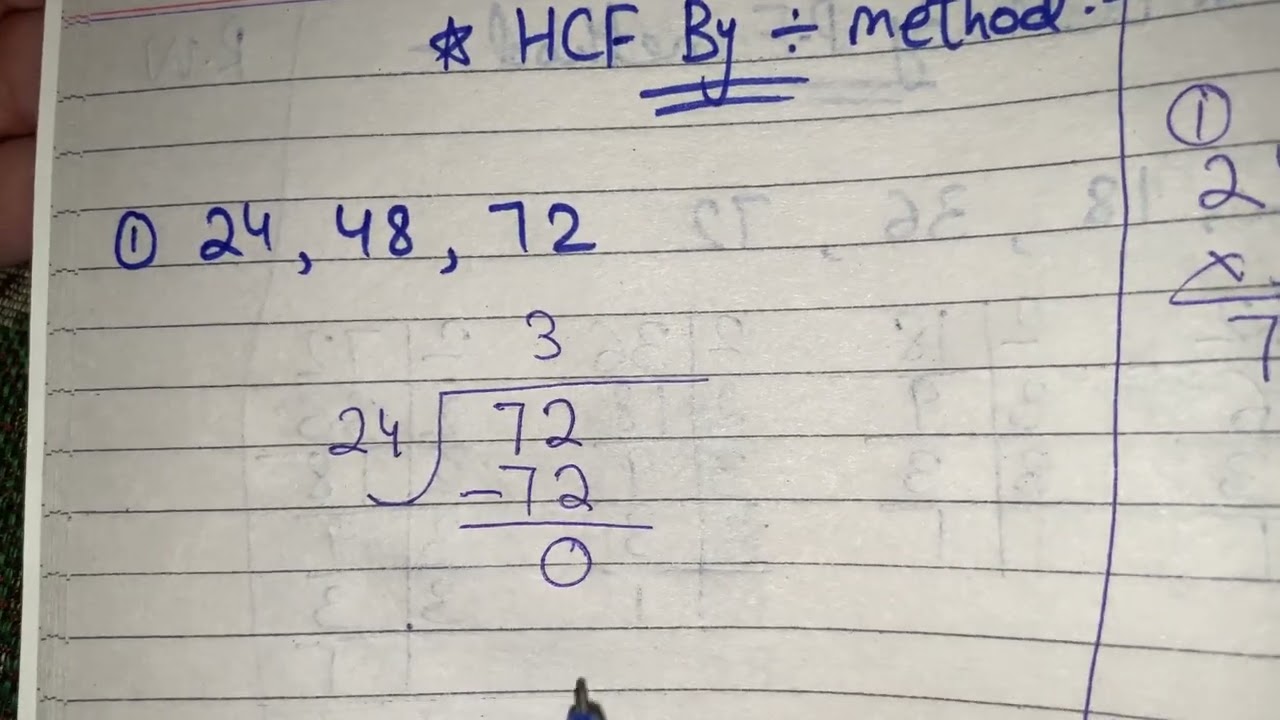 * HCF By ÷ method.
① 24, 48, 72
3
24 72
-72
0
①
2
×
7